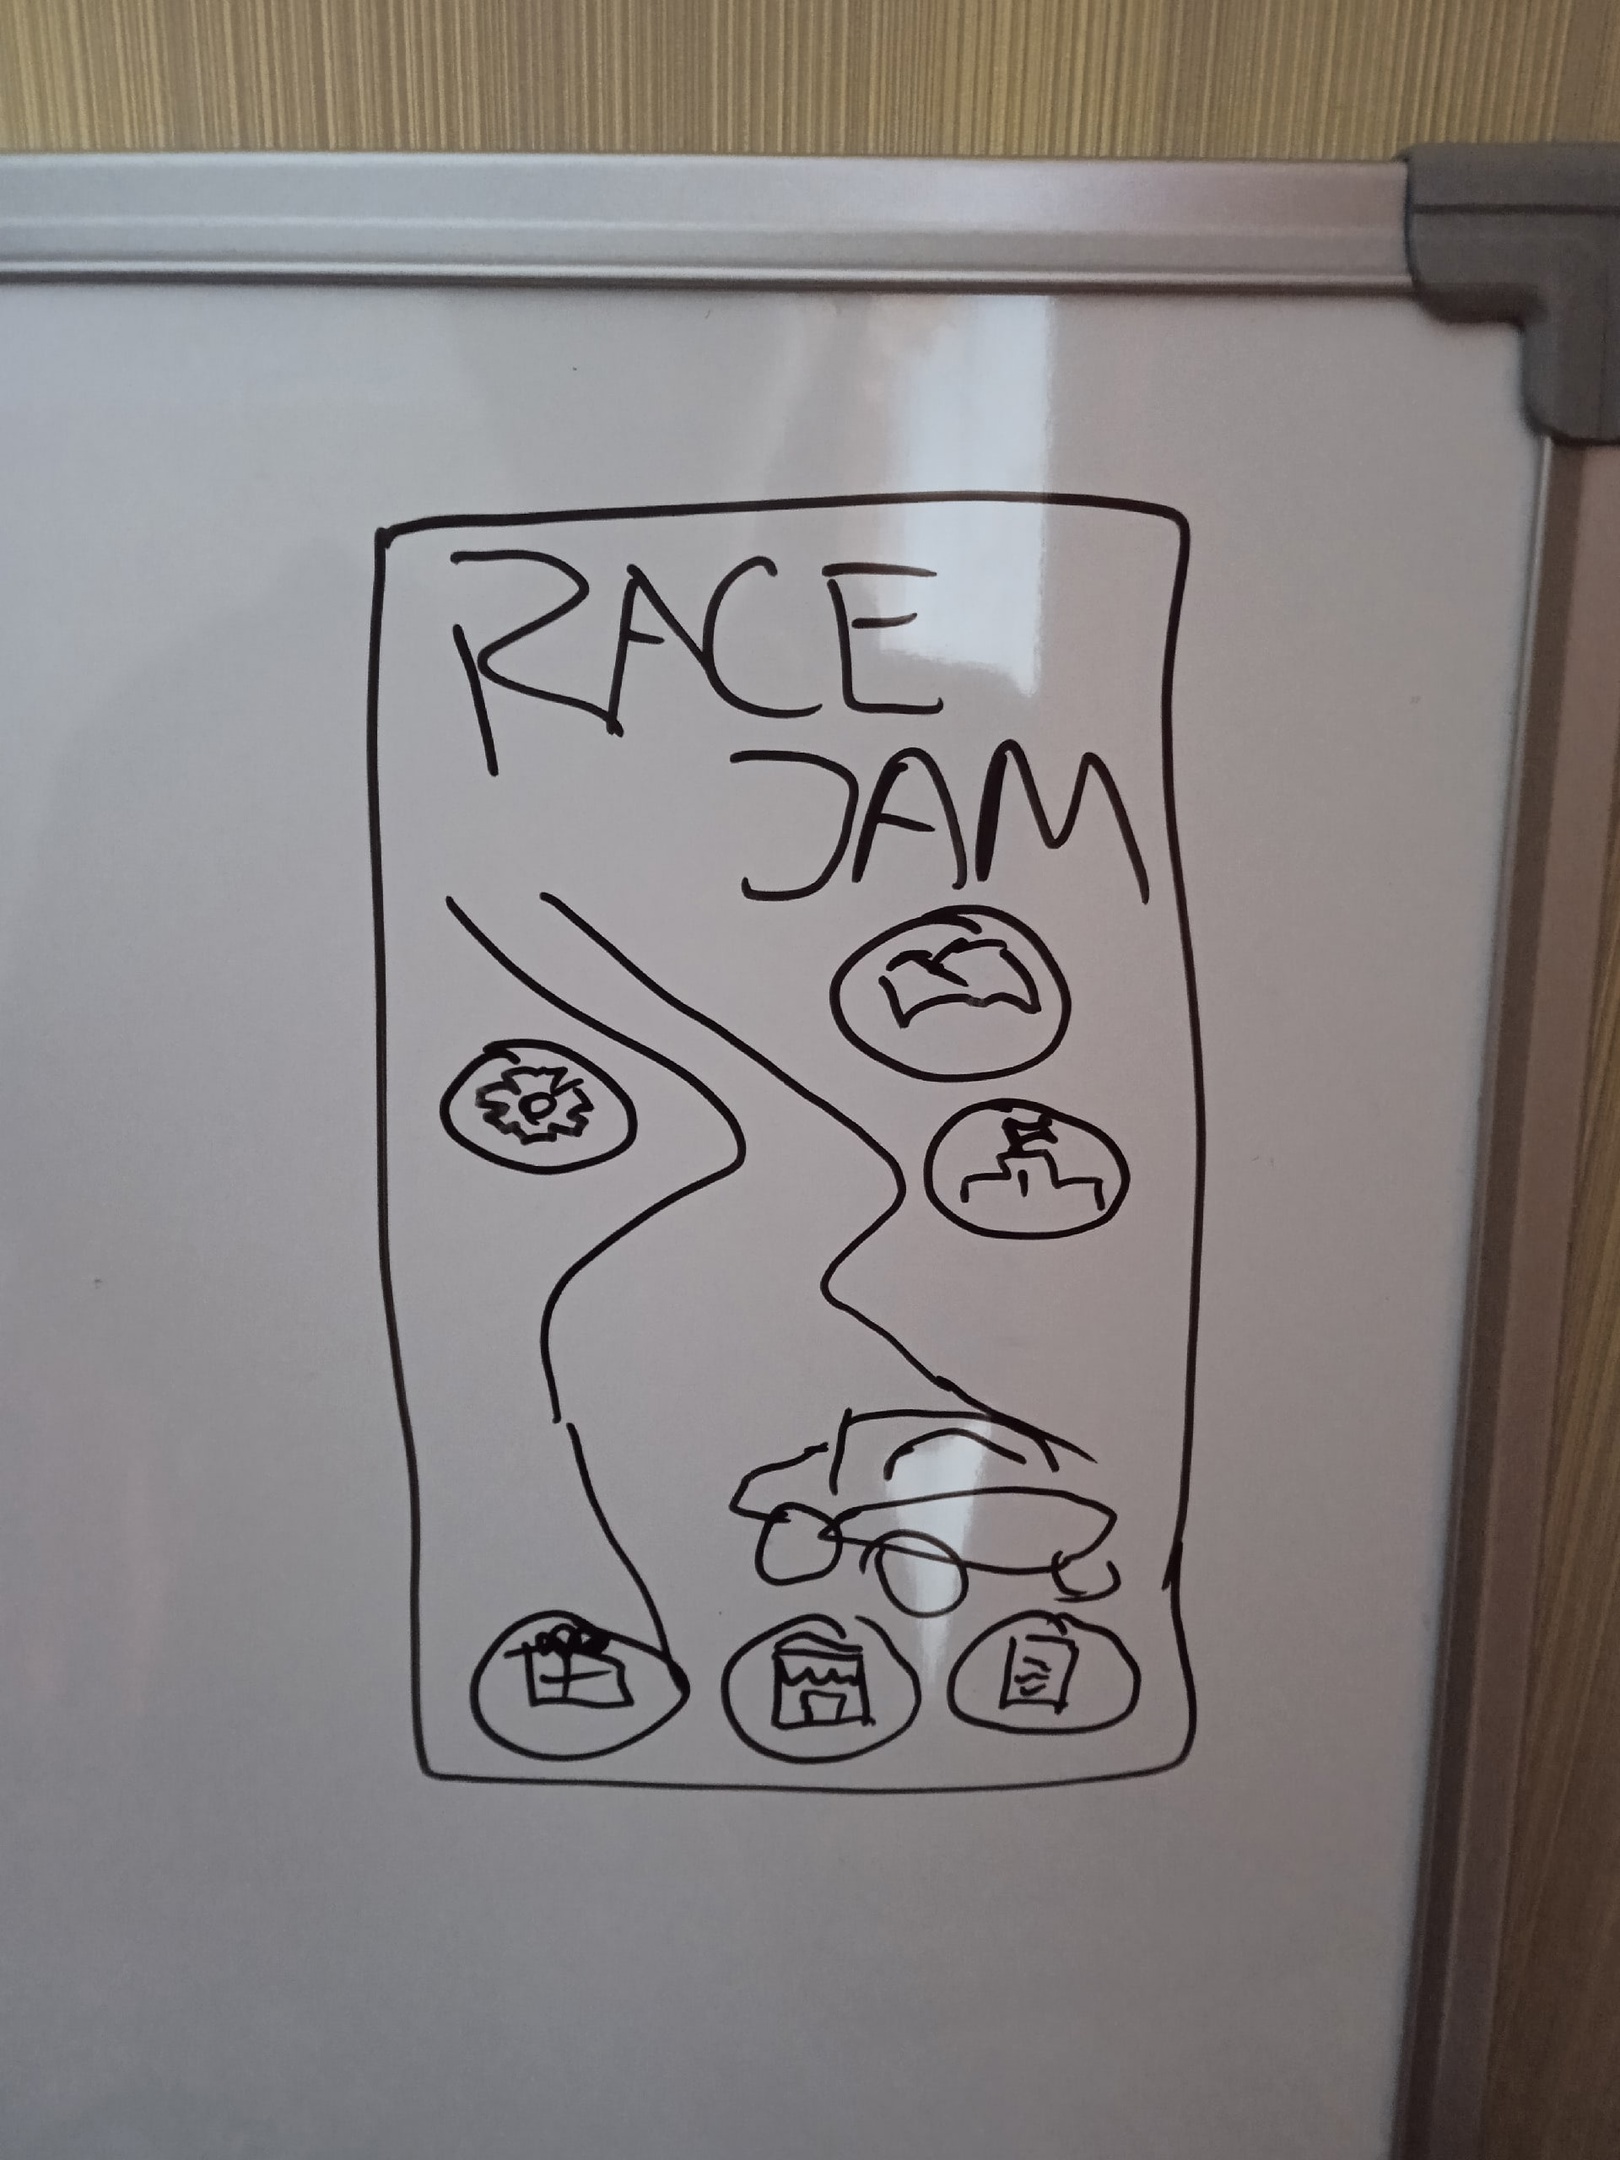 RACE
JAM